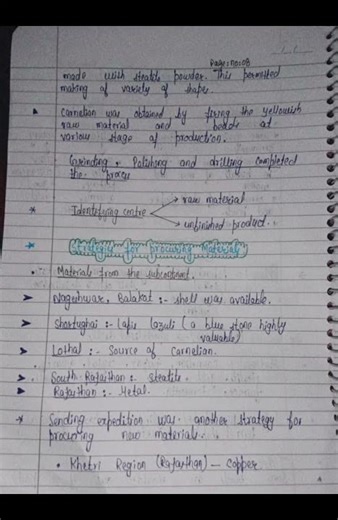 Page: No: 08
made with steatite powder. This permitted
making of variety of shapes.
Carnelion was obtained by firing the yellowish
raw material and beads at
various stage of production.
Grinding, Polishing and drilling completed
the process
raw material
Identifying centre
unfinished product.
Strategies for procuring Materials
Materials from the subcontinent.
Nageshwar, Balakot :- shell was available.
Shortughai :- Lapis Lazuli (a blue stone highly
valuable)
Lothal :- Source of Carnelian.
South Rajasthan :- steatite.
Rajasthan :- Metal.
Sending expedition was another strategy for
procuring new materials.
Khetri Region (Rajasthan) — Copper